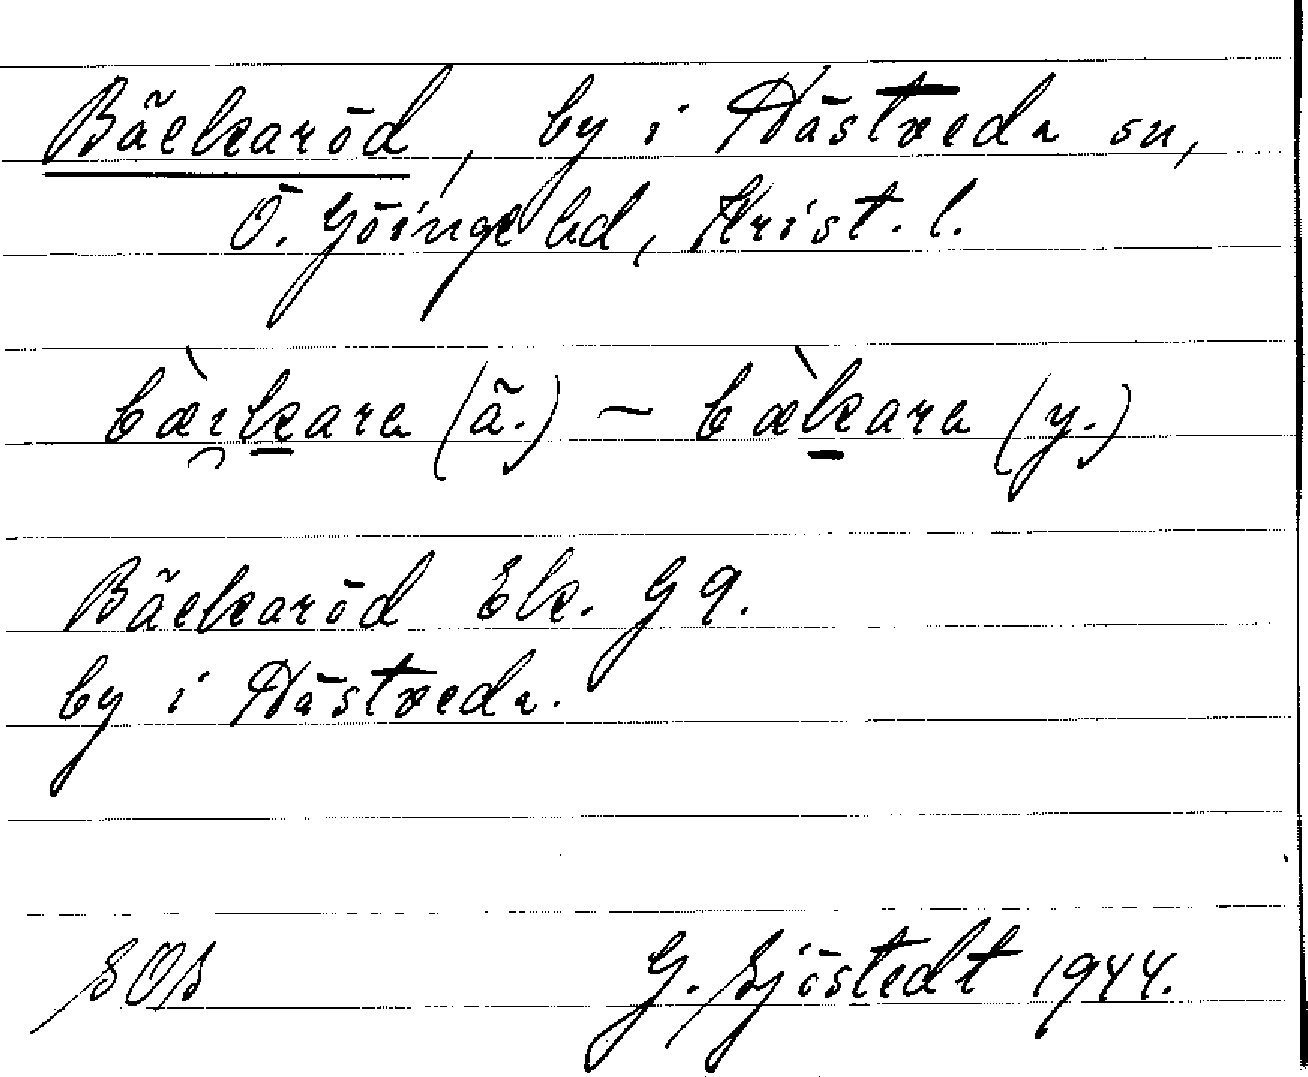 Bäckaröd, by i Hästveda sn,
Ö. Göinge hd, Krist. l.
bæ̀ı̯kara (ä.) – bæ̀kara (y.)
Bäckaröd Ek. G 9.
by i Hästveda.
SOS G. Sjöstedt 1944.